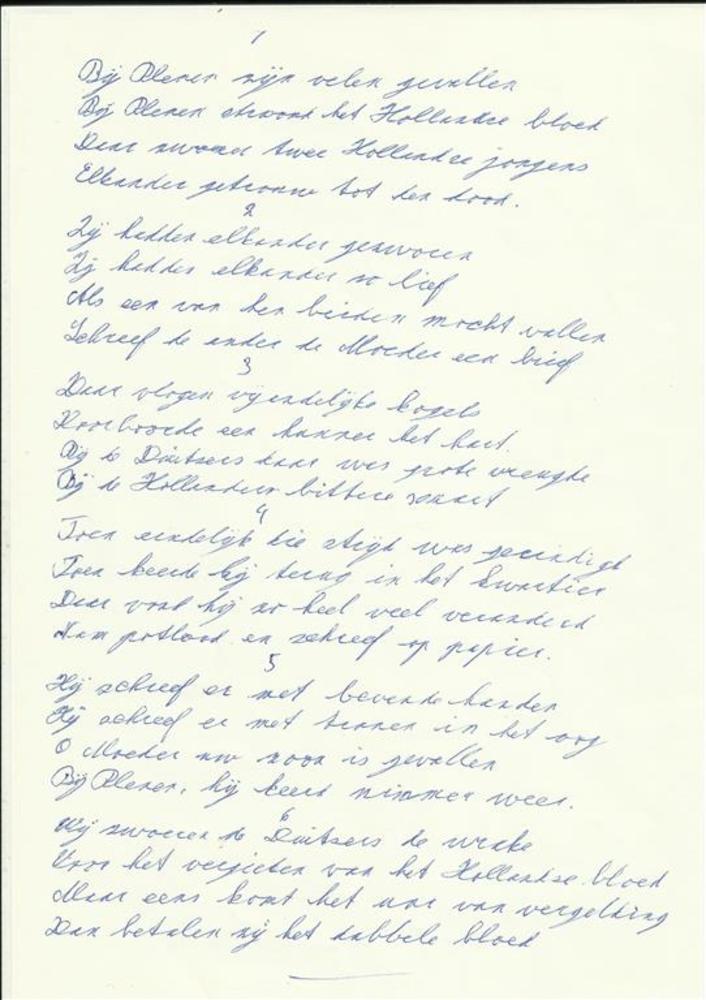 1
Bij Rhenen zijn velen gevallen
Bij Rhenen stroomt het Hollandse bloed
Daar zwoeren twee Hollandse jongens
Elkander getrouw tot den dood.
2
Zij hadden elkander gezworen
Zij hadden elkander zo lief
Als een van hen beiden mocht vallen
Schreef de ander de Moeder een brief
3
Daar vlogen vijandelijke kogels
Doorboorde een kunner het hart.
Bij de Duitsers daar was grote vreugde
Bij de Hollanders bittere smart
4
Toen eindelijk die strijd was geeindigd
Toen keerde hij terug in het kwartier
Daar vond hij zo heel veel veranderd
Nam potlood en schreef op papier.
5
Hij schreef er met bevende handen
Hij schreef er met tranen in het oog
O Moeder uw zoon is gevallen
Bij Rhenen, hij keert nimmer weer.
6
Wij zwoeren de Duitsers de wrake
Voor het vergieten van het Hollandse bloed
Maar eens komt het uur van vergelding
Dan betalen zij het dubbele bloed